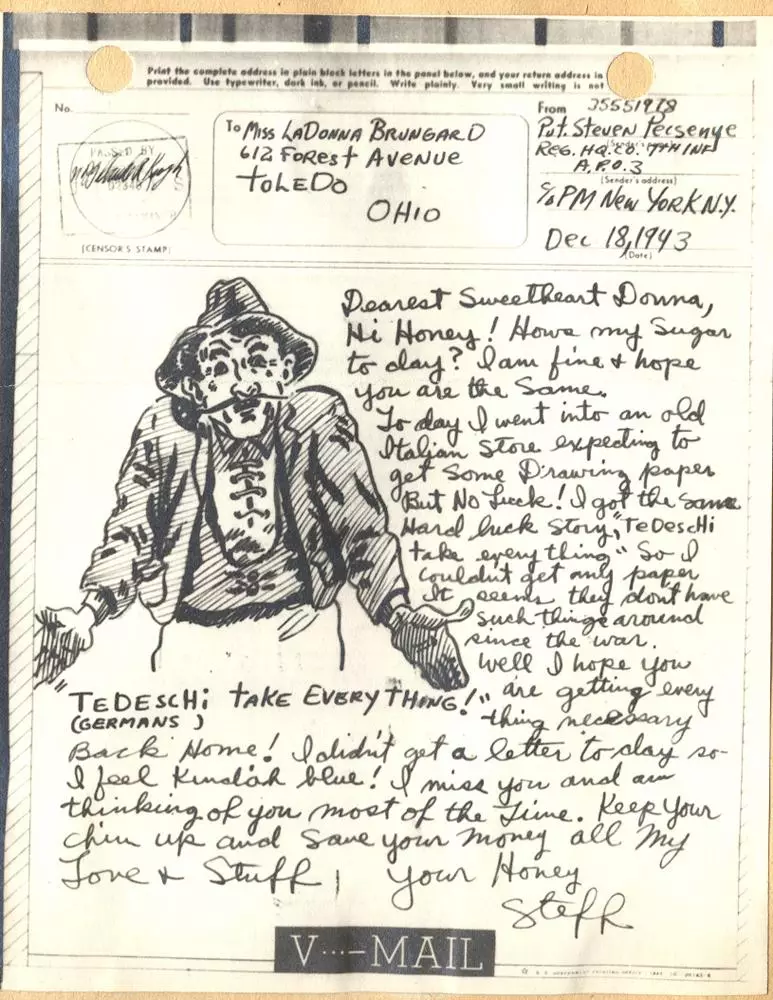 Print the complete address in plain block letters in the panel below, and your return address in
provided. Use typewriter, dark ink, or pencil. Write plainly. Very small writing is not
No.
PASSED BY
(CENSOR'S STAMP)
To Miss LaDonna Brungard
612 Forest Avenue
Toledo
Ohio
From 35551978
Pvt. Steven Pecsenye
(Sender's name)
Reg. Hq. Co. 7th Inf
A.P.O. 3
(Sender's address)
c/o PM New York N.Y.
Dec 18, 1943
(Date)
Dearest Sweetheart Donna,
Hi Honey! Hows my Sugar
to day? I am fine & hope
you are the Same.
To day I went into an old
Italian Store expecting to
get Some Drawing paper
But No Luck! I got the same
Hard luck Story, "Tedeschi
take every thing" So I
couldnt get any paper
It seems they dont have
such things around
since the war.
Well I hope you
are getting every
thing necessary
TEDESCHi TAKE EVERY THING!"
(GERMANS)
Back Home! I didn't get a letter to day so
I feel Kindah blue! I miss you and am
thinking of you most of the Time. Keep Your
chin up and Save your money all My
Love & Stuff! Your Honey
Steff
V···—MAIL